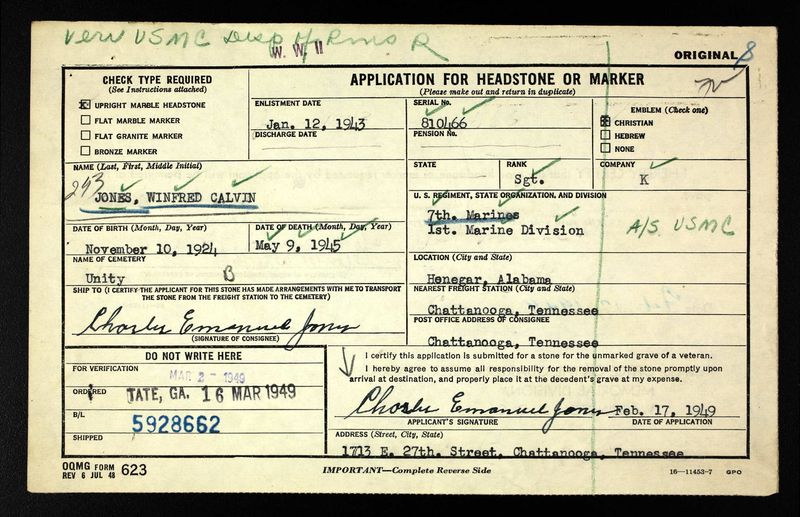 Veri USMC
W. W. II
ORIGINAL 8
CHECK TYPE REQUIRED
(See Instructions attached)
UPRIGHT MARBLE HEADSTONE
FLAT MARBLE MARKER
FLAT GRANITE MARKER
BRONZE MARKER
APPLICATION FOR HEADSTONE OR MARKER
(Please make out and return in duplicate)
ENLISTMENT DATE
Jan. 12, 1943
DISCHARGE DATE
SERIAL No.
810466
PENSION No.
EMBLEM (Check one)
CHRISTIAN
HEBREW
NONE
NAME (Last, First, Middle Initial)
293
JONES, WINFRED CALVIN
STATE
RANK
Sgt.
COMPANY
K
U. S. REGIMENT, STATE ORGANIZATION, AND DIVISION
7th. Marines
1st. Marine Division
A/S USMC
DATE OF BIRTH (Month, Day, Year)
November 10, 1924
DATE OF DEATH (Month, Day, Year)
May 9, 1945
NAME OF CEMETERY
Unity B
LOCATION (City and State)
Henegar, Alabama
SHIP TO (I CERTIFY THE APPLICANT FOR THIS STONE HAS MADE ARRANGEMENTS WITH ME TO TRANSPORT
THE STONE FROM THE FREIGHT STATION TO THE CEMETERY)
Charles Emanuel Jones
(SIGNATURE OF CONSIGNEE)
NEAREST FREIGHT STATION (City and State)
Chattanooga, Tennessee
POST OFFICE ADDRESS OF CONSIGNEE
Chattanooga, Tennessee
DO NOT WRITE HERE
FOR VERIFICATION
MAR 2 - 1949
ORDERED
TATE, GA. 16 MAR 1949
B/L
5928662
SHIPPED
I certify this application is submitted for a stone for the unmarked grave of a veteran.
I hereby agree to assume all responsibility for the removal of the stone promptly upon
arrival at destination, and properly place it at the decedent's grave at my expense.
Charles Emanuel Jones Feb. 17, 1949
APPLICANT'S SIGNATURE DATE OF APPLICATION
ADDRESS (Street, City, State)
1713 E. 27th. Street, Chattanooga, Tennessee
OQMG FORM
REV 6 JUL 48 623
IMPORTANT—Complete Reverse Side
16—11453-7 GPO